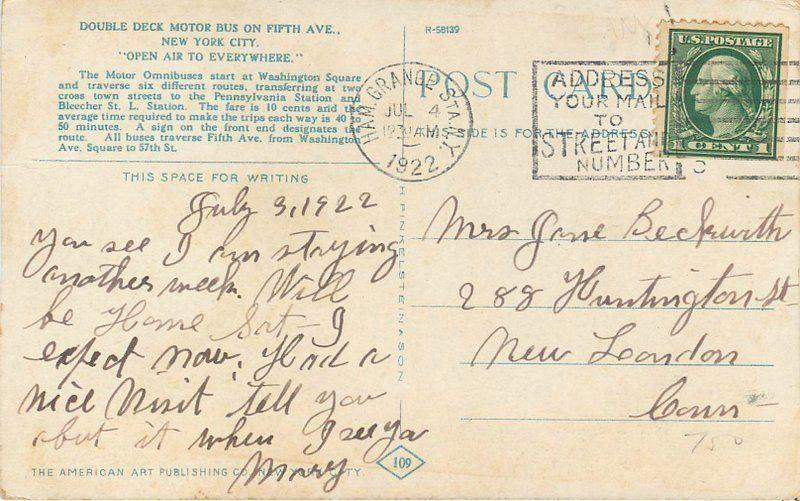 DOUBLE DECK MOTOR BUS ON FIFTH AVE.,
NEW YORK CITY.
"OPEN AIR TO EVERYWHERE."
The Motor Omnibuses start at Washington Square
and traverse six different routes, transferring at two
cross town streets to the Pennsylvania Station and
Bleecher St. L. Station. The fare is 10 cents and the
average time required to make the trips each way is 40 to
50 minutes. A sign on the front end designates the
route. All buses traverse Fifth Ave. from Washington
Ave. Square to 57th St.
R-58139
POST CARD
THIS SIDE IS FOR THE ADDRESS
HAM. GRANGE STA. N.Y.
JUL 4
1230 AM
1922
ADDRESS
YOUR MAIL
TO
STREET AND
NUMBER
U.S. POSTAGE
1 CENT 1
THIS SPACE FOR WRITING
July 3, 1922
You see I am staying
another week. Will
be Home Sat - I
expect now. Had a
nice Visit tell you
about it when I see ya
Mary
H FINKELSTEIN & SON
Mrs Jane Beckwith
288 Huntington St
New London
Conn -
750
THE AMERICAN ART PUBLISHING CO. NEW YORK CITY.
109